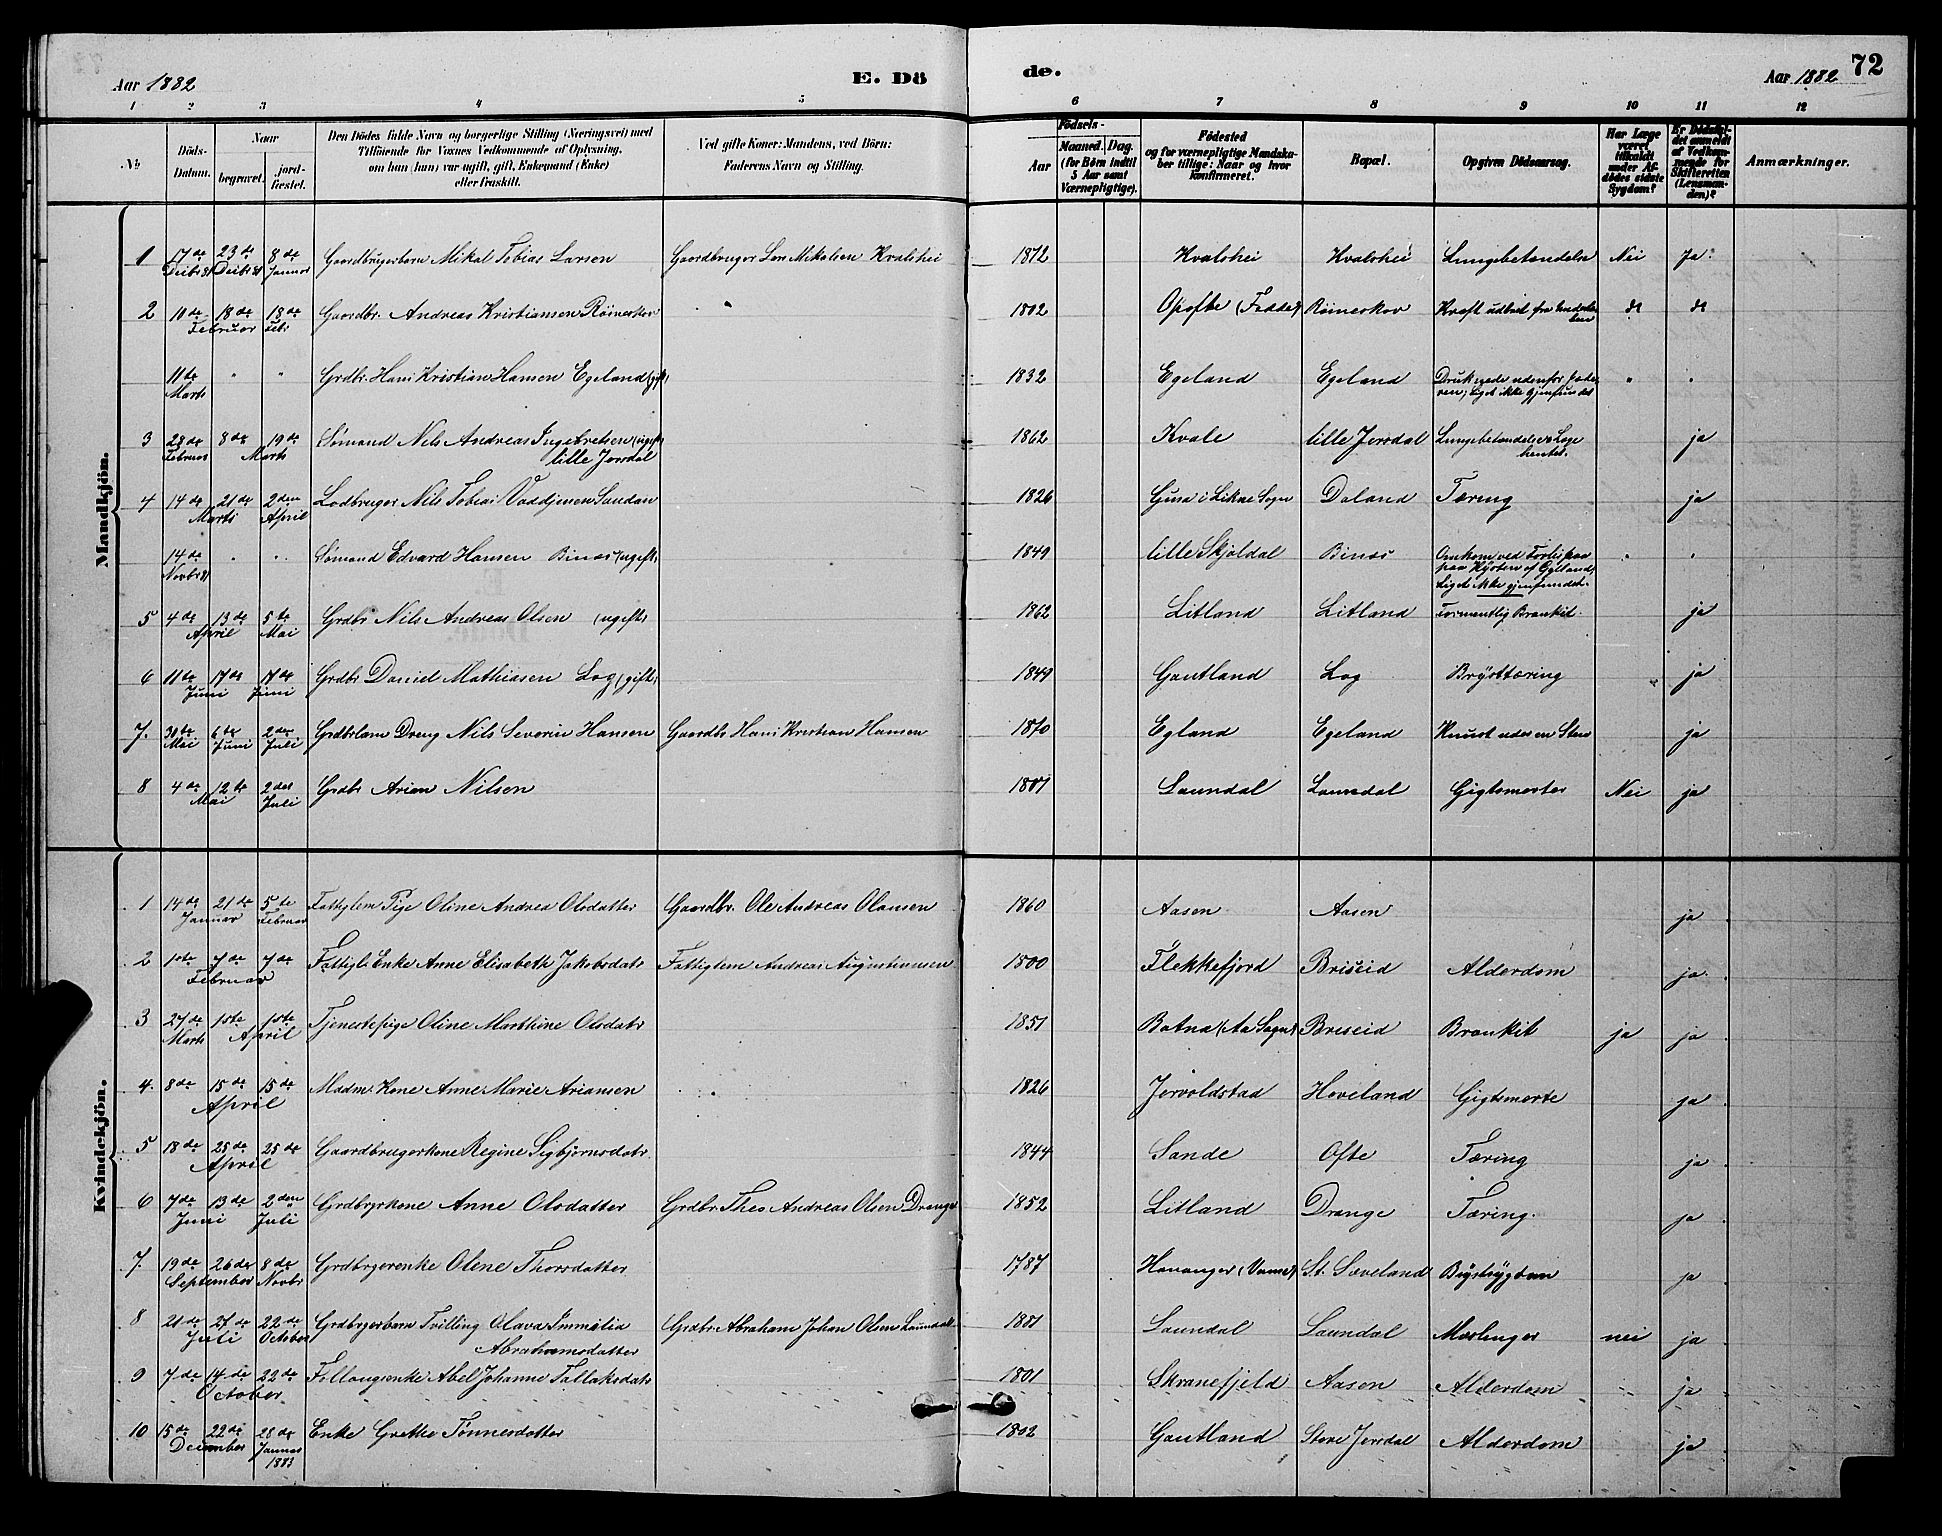 Aar 1882 E. Dö de. Aar 1882 72
1 2 3 4 5 6 7 8 9 10 11 12
№ Döds-Datum. Naar begravet. jordfæstet. Den Dödes fulde Navn og borgerlige Stilling (Næringsvei) med Tilföiende for Voxnes Vedkommende af Oplysning, om han (hun) var ugift, gift, Enkemand (Enke) eller fraskilt. Ved gifte Koner: Mandens, ved Börn: Faderens Navn og Stilling. Födsels- Aar Maaned. Dag. (for Börn indtil 5 Aar samt Værnepligtige). Födested og for værnepligtige Mandskaber tillige: Naar og hvor konfirmeret. Bopæl. Opgiven Dödsaarsag. Har Læge været tilkaldt under Afdödes sidste Sygdom? Er Dödsfaldet anmeldt af Vedkommende for Skifteretten (Lensmanden)? Anmærkninger.
Mandkjön.
1 17de Decbr 81 23de Decbr 81 8de Januar Gaardbrugerbarn Mikal Tobias Larsen Gaardbruger Lars Mikalsen Kvalshei 1872 Kvalshei Kvalshei Lungebetændelse Nei Ja
2 10de 18de Februar 18de Febr Gaardbr. Andreas Kristiansen Röineskor " 1802 Opofte (Fædde) Röineskor Kraft do do
11te Marts " " Grdbr. Hans Kristian Hansen Egeland (gift) 1832 Egeland Egeland Druknede udenfor ; Liget ikke gjenfundet " "
3 28de Februar 8de 19de Marts Sömand Nils Andreas Ingebretsen (ugift) lille Jerdal 1862 Kvale lille Jerdal Lungebetændelse Læge hentet. ja
4 14de 21de Marts 2den April Lodbruger Nils Tobias Sandan 1826 Gusa i Likne Sogn Daland Tæring ja
14de Novbr 81 " " Sömand Edvard Hansen Binas (ugift) 1849 lille Skjoldal Binas Omkom ved Forlis paa Kysten af Jylland, Liget ikke gjenfundet. " "
5 4de 13de April 5te Mai Grdbr Nils Andreas Olsen (ugift) 1862 Litland Litland Formentlig Bronkit. ja
6 11de 17de Juni 17de Juni Grdbr Daniel Mathiasen Log (gift) 1849 Gautland Log Brysttæring ja
7. 30te Mai 6te Juni 2den Juli Dreng Nils Severin Hansen Gaardbr Hans Kristian Hansen 1870 Egland Egeland Knust under en Sten ja
8 4de 12te Mai 2den Juli Grdbr Arian Nilsen 1801 Laundal Laundal Gigtsmerter Nei ja
Kvindekjön.
1 14de 21de Januar 5te Februar Fattiglem Pige Oline Andrea Olsdatter Gaardbr. Ole Andreas Olausen 1860 Aasen Aasen ja
2 1ste 7de Februar 7de Fattigl. Enke Anne Elisabeth Jakobsdatr Fattiglem Andreas Augustinusen 1800 Flekkefjord Briseid Alderdom ja.
3 27de Marts 1ste 1ste April Tjenestepige Oline Marthine Olsdatr 1851 Botna (Aa Sogn) Briseid Bronkit ja ja
4. 8de 15de April 15de Madm. Kone Anne Marie Ariansen 1826 Jervoldstad Hoveland Gigtsmerte ja
5 18de 25de April 25de Gaardbrugerkone Regine Sigbjörnsdatr. 1844 Sande Ofte Tæring ja
6 7de Juni 13de 2den Juli Grdbrgrkone Anne Olsdatter Grdbr. Theo Andreas Olsen Drange 1852 Litland Drange Tæring. ja
7. 19de 26de September 8de Novbr Grdbrgerenke Olene Thorsdatter 1787 Hananger (Vanse) St. Sæveland Brystsygdom ja
8 21de 27de Juli 22de October Grdbrgerbarn Tvilling Olava Immalia Abrahamsdatter Grdbr. Abraham Johan Olsen Laundal 1881 Laundal Laundal Meslinger nei ja
9 7de 14de October 22de Follaugsenke Abel Johanne Tallaksdatr 1801 Skranefjeld Aasen Alderdom ja
10 15de 22de December 28de Januar 1883 Enke Grethe Tönnesdatter 1802 Gautland Store Jerdal Alderdom ja